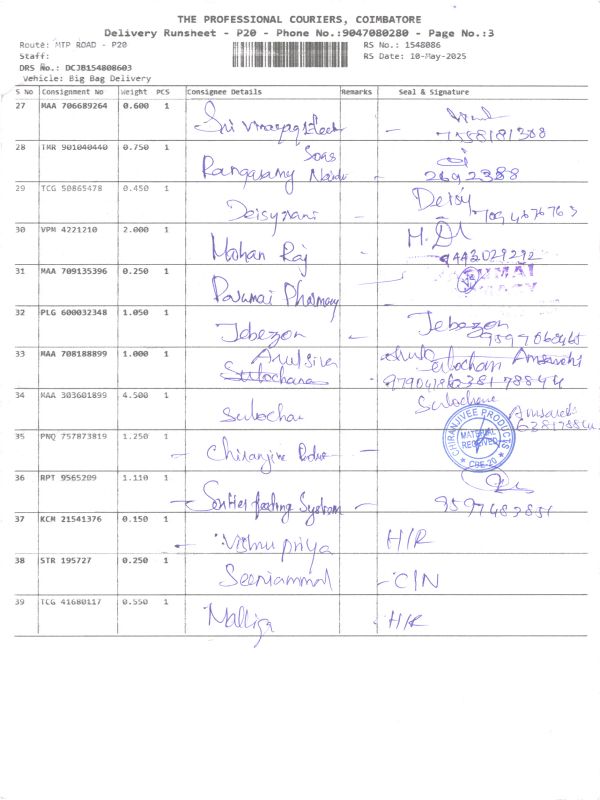 THE PROFESSIONAL COURIERS, COIMBATORE
Delivery Runsheet - P20 - Phone No.:9047080280 - Page No.:3
Route: MTP ROAD - P20 RS No.: 1548086
Staff: RS Date: 10-May-2025
DRS No.: DCJB154808603
Vehicle: Big Bag Delivery
S No Consignment No Weight PCS Consignee Details Remarks Seal & Signature
27 MAA 706689264 0.600 1 Sri Vinayaga Elect - 7588181388
28 TMR 901040440 0.750 1 Rangasamy Naidu Sons - 2692388
29 TCG 50865478 0.450 1 Deisyrani Deisy
30 VPM 4221210 2.000 1 Mohan Raj 9443029292
31 MAA 709135396 0.250 1 Pharmacy
32 PLG 600032348 1.050 1 Jebezon - Jebezon
33 MAA 708188899 1.000 1 Sulochana
34 MAA 303601899 4.500 1 Sulochana
35 PNQ 757873819 1.250 1 - Chiranjive - CHIRANJIVEE PRODUCTS MATERIAL RECEIVED CBE-20
36 RPT 9565209 1.110 1 System - 9597483851
37 KCM 21541376 0.150 1 - Vishnu priya H/R
38 STR 195727 0.250 1 Seeniammal - C/N
39 TCG 41680117 0.550 1 Malliga - H/R